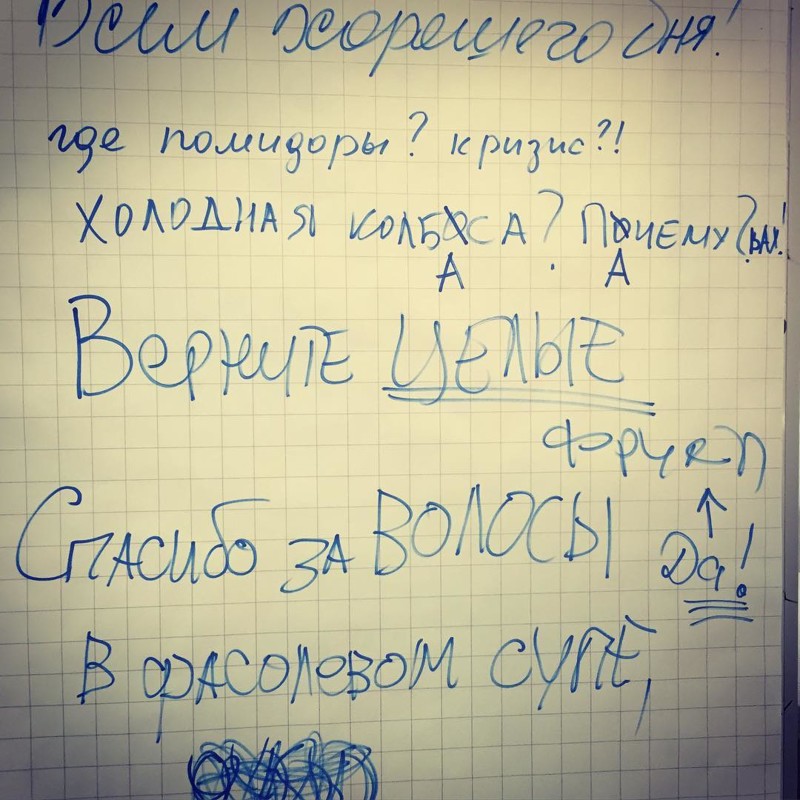 Всем хорошего дня!
где помидоры? кризис?!
ХОЛОДНАЯ КОЛБОСА? ПОЧЕМУ? ВАХ!
А А
Верните ЦЕЛЫЕ
фрукт
Спасибо за ВОЛОСЫ
Да!
В фасолевом супе,